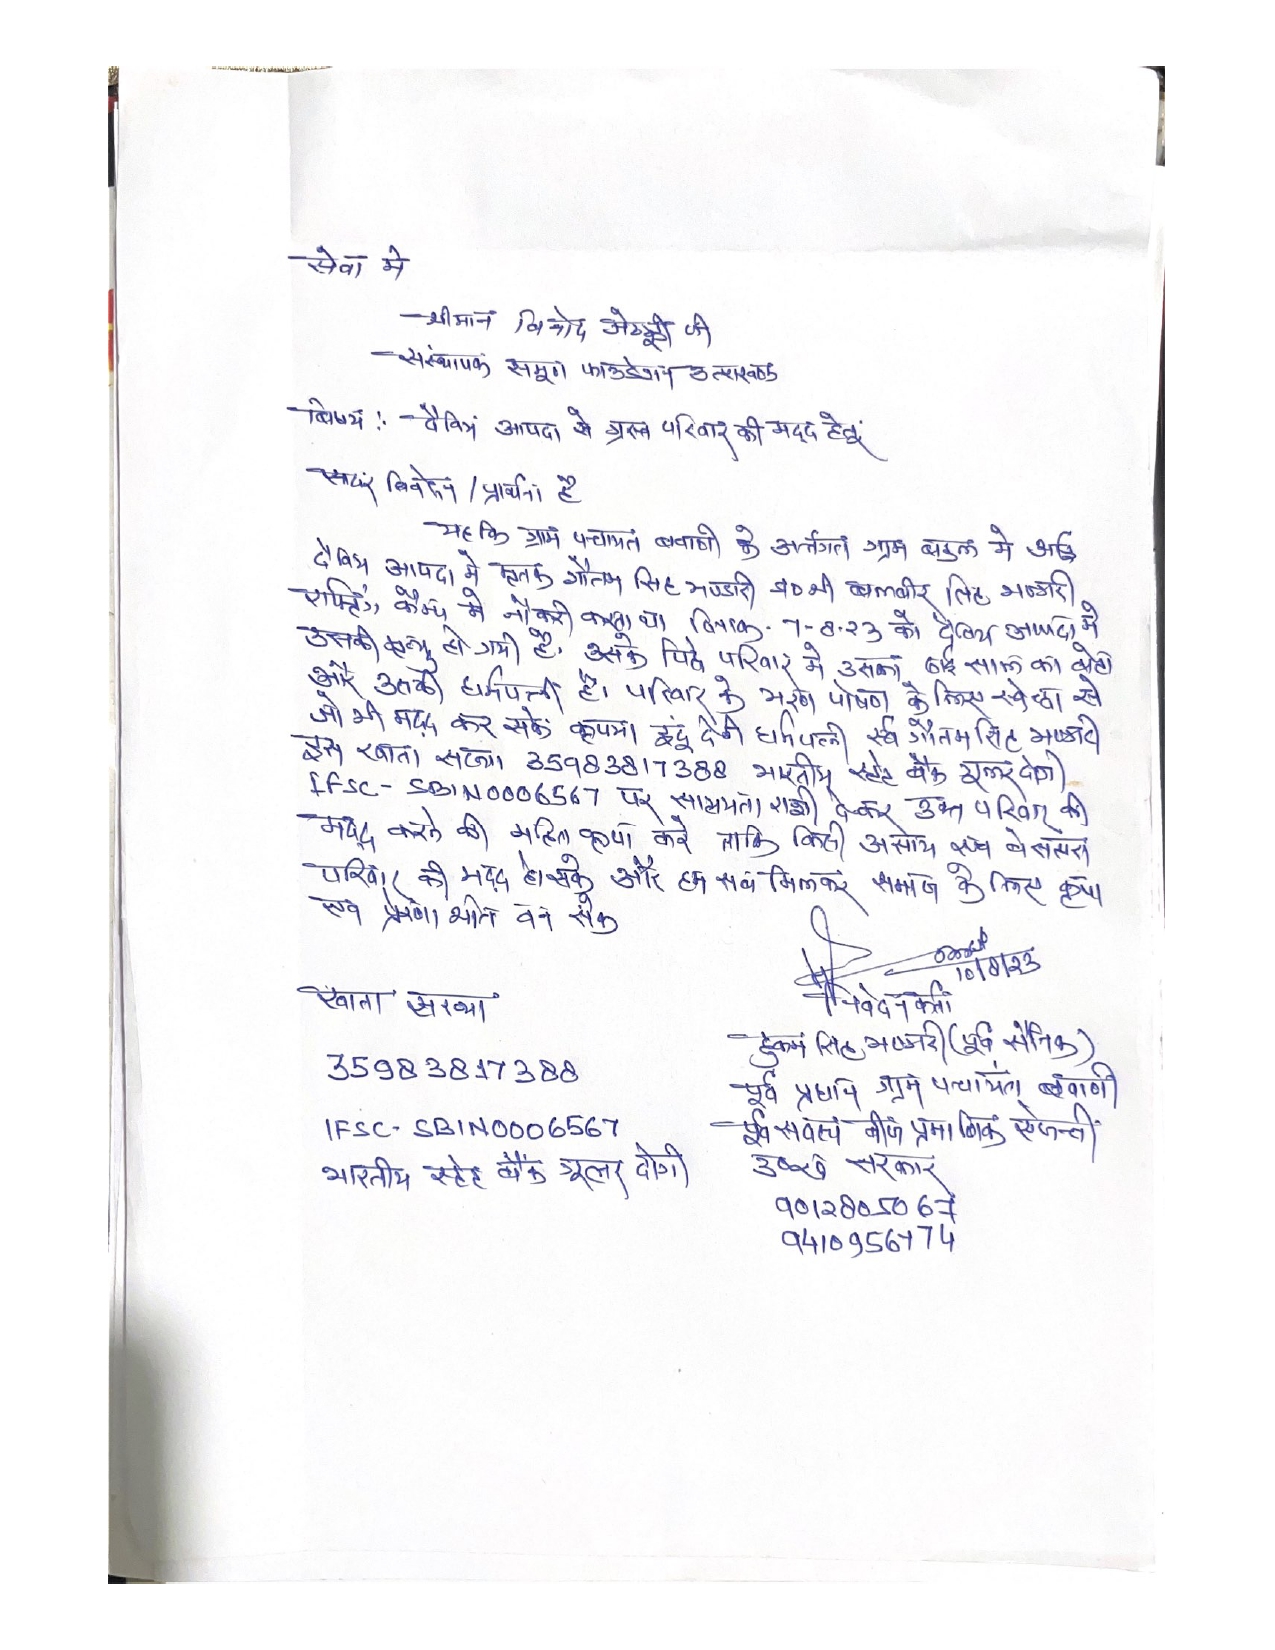 सेवा मे
श्रीमान विनोद जी
संस्थापक समूण फाउडेशन उत्तराखण्ड
विषय :- दैविय आपदा से ग्रस्त परिवार की मदद हेतु
सादर निवेदन / प्रार्थना है
यह कि ग्राम पन्चायत बवाणी के अर्न्तगत ग्राम मे
दैविय आपदा मे मृतक गौतम सिह भण्डारी श्री बलवीर सिह भण्डारी
राफ्टिंग कैम्प मे नौकरी करता था दिनांक- 7-8-23 को दैविय आपदा मे
उसकी मृत्यु हो गयी है, उसके पिछे परिवार मे उसका ढाई साल का बेटा
और उसकी धर्मपत्नी है। परिवार के भरण पोषण के लिए स्वेच्छा से
जो भी मदद कर सके कृपया इंदू देवी धर्मपत्नी स्व गौतम सिह भण्डारी
इस खाता सख्या 35983817388 भारतीय स्टेट बैंक गूलर दोगी
IFSC- SBIN0006567 पर सहायता राशी देकर उक्त परिवार की
मदद करने की कृपा करे ताकि किसी असहाय एव बेसहारा
परिवार की मदद हो सके और हम सब मिलकर समाज के लिए कृपा
एव प्रेरणा श्रोत बन सके
10/8/23
निवेदनकर्ता
खाता सख्या
हुकम सिह भण्डारी (पूर्व सैनिक)
35983817388
पूर्व प्रधान ग्राम पन्चायत बवाणी
IFSC- SBIN0006567
पूर्व सदस्य बीज प्रमाणिक ऐजेन्सी
भारतीय स्टेट बैंक गूलर दोगी
उ०ख० सरकार
9012805067
9410956774